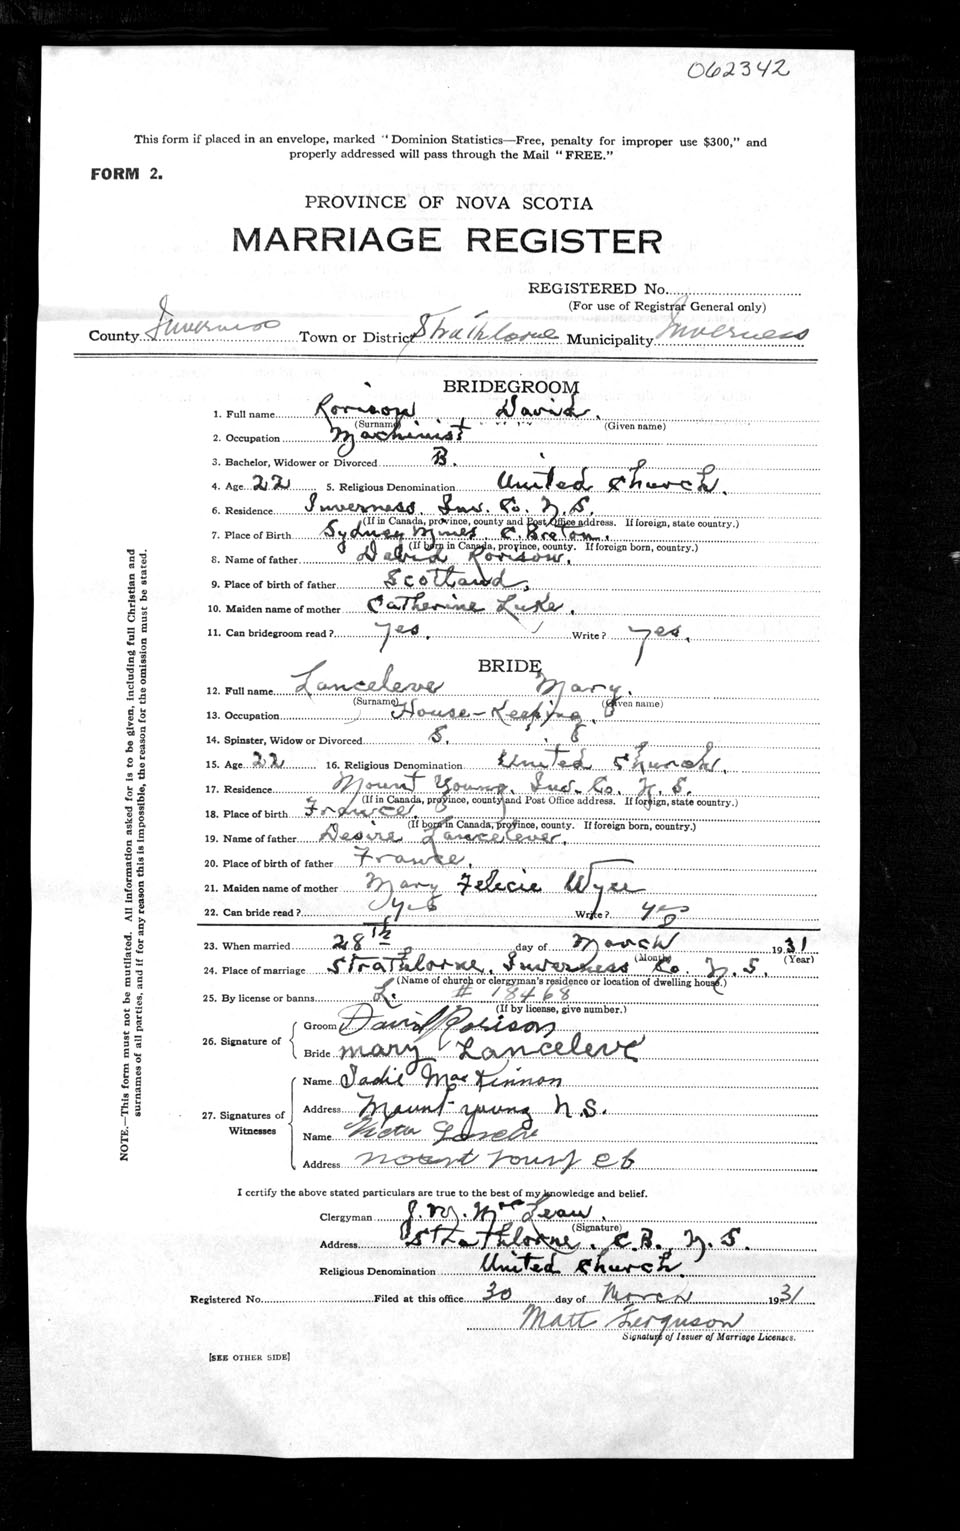 062342
This form if placed in an envelope, marked "Dominion Statistics—Free, penalty for improper use $300," and
properly addressed will pass through the Mail "FREE."
FORM 2.
PROVINCE OF NOVA SCOTIA
MARRIAGE REGISTER
REGISTERED No.
(For use of Registrar General only)
County Inverness Town or District Strathlorne Municipality Inverness
BRIDEGROOM
1. Full name Rorison David.
(Surname) (Given name)
2. Occupation Machinist
3. Bachelor, Widower or Divorced B.
4. Age 22 5. Religious Denomination United Church.
6. Residence Inverness, Inv. Co. N.S.
(If in Canada, province, county and Post Office address. If foreign, state country.)
7. Place of Birth Sydney Mines, C. Breton.
(If born in Canada, province, county. If foreign born, country.)
8. Name of father David Rorison.
9. Place of birth of father Scotland,
10. Maiden name of mother Catherine Luke.
11. Can bridegroom read? Yes. Write? Yes.
BRIDE
12. Full name Lanceleve Mary.
(Surname) (Given name)
13. Occupation House-Keeping
14. Spinster, Widow or Divorced S.
15. Age 22 16. Religious Denomination United Church.
17. Residence Mount Young, Inv. Co. N.S.
(If in Canada, province, county and Post Office address. If foreign, state country.)
18. Place of birth France.
(If born in Canada, province, county. If foreign born, country.)
19. Name of father Desire Lancelever.
20. Place of birth of father France.
21. Maiden name of mother Mary Felecie
22. Can bride read? yes Write? yes
23. When married 28th day of March 1931
(Month) (Year)
24. Place of marriage Strathlorne, Inverness Co. N.S.
(Name of church or clergyman's residence or location of dwelling house.)
25. By license or banns L. # 18468
(If by license, give number.)
26. Signature of Groom David Rorison
Bride Mary Lanceleve
27. Signatures of Witnesses
Name Sadie MacKinnon
Address Mount Young N.S.
Name Victor
Address Mount Young C B
I certify the above stated particulars are true to the best of my knowledge and belief.
Clergyman J. McLean.
(Signature)
Address Strathlorne, C.B., N.S.
Religious Denomination United Church.
Registered No. Filed at this office 30 day of March 1931
Matt Ferguson
Signature of Issuer of Marriage Licenses.
[SEE OTHER SIDE]
NOTE.—This form must not be mutilated. All information asked for is to be given, including full Christian and
surnames of all parties, and if for any reason this is impossible, the reason for the omission must be stated.